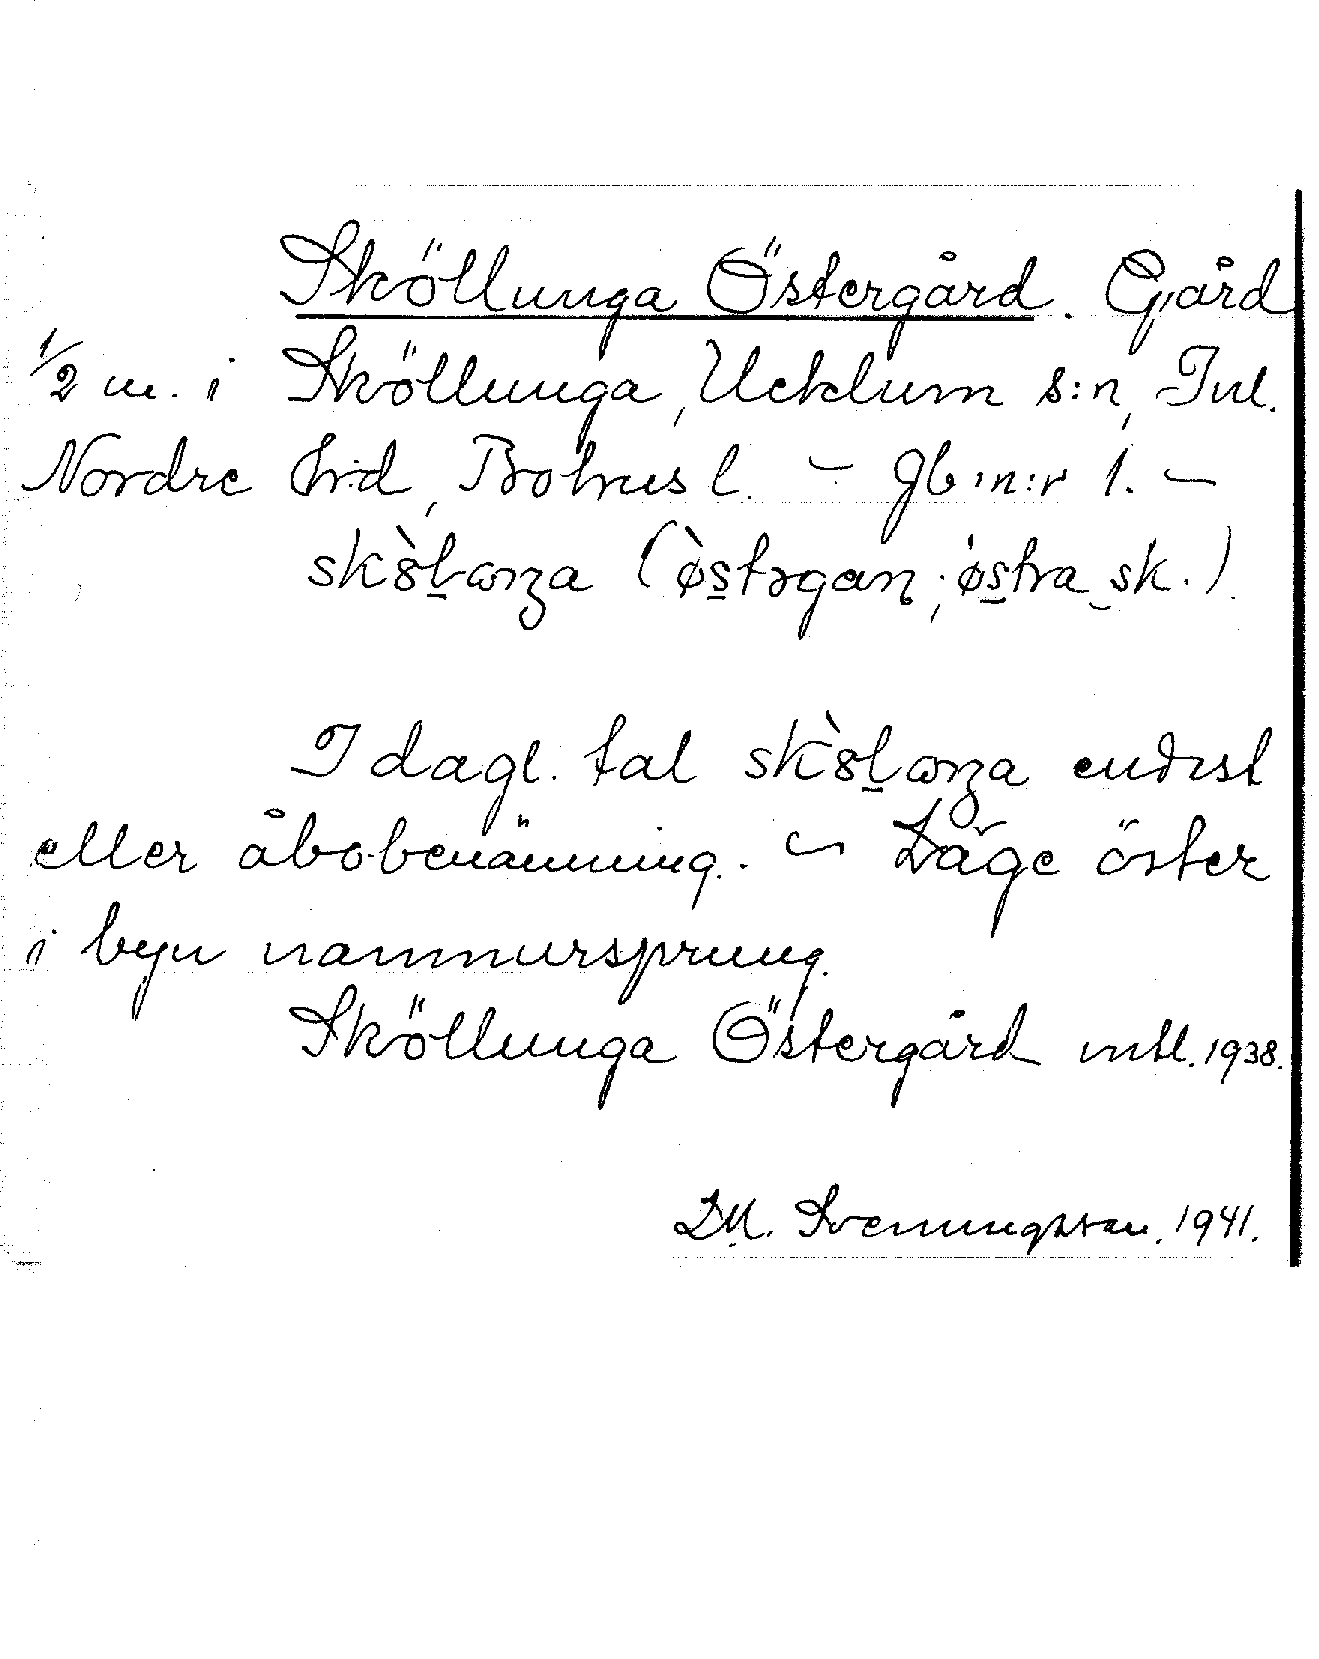 Sköllunga Östergård. Gård
1/2 m. i Sköllunga, Ucklum s:n, Inl.
Nordre hd, Bohusl. – Jb:n:r 1. –
(østrgan; østra sk.).
I dagl. tal endast
eller åbobenämning. – Läge öster
i byn namnursprung.
Sköllunga Östergård mtl. 1938.
D.M. Svenningsson. 1941.